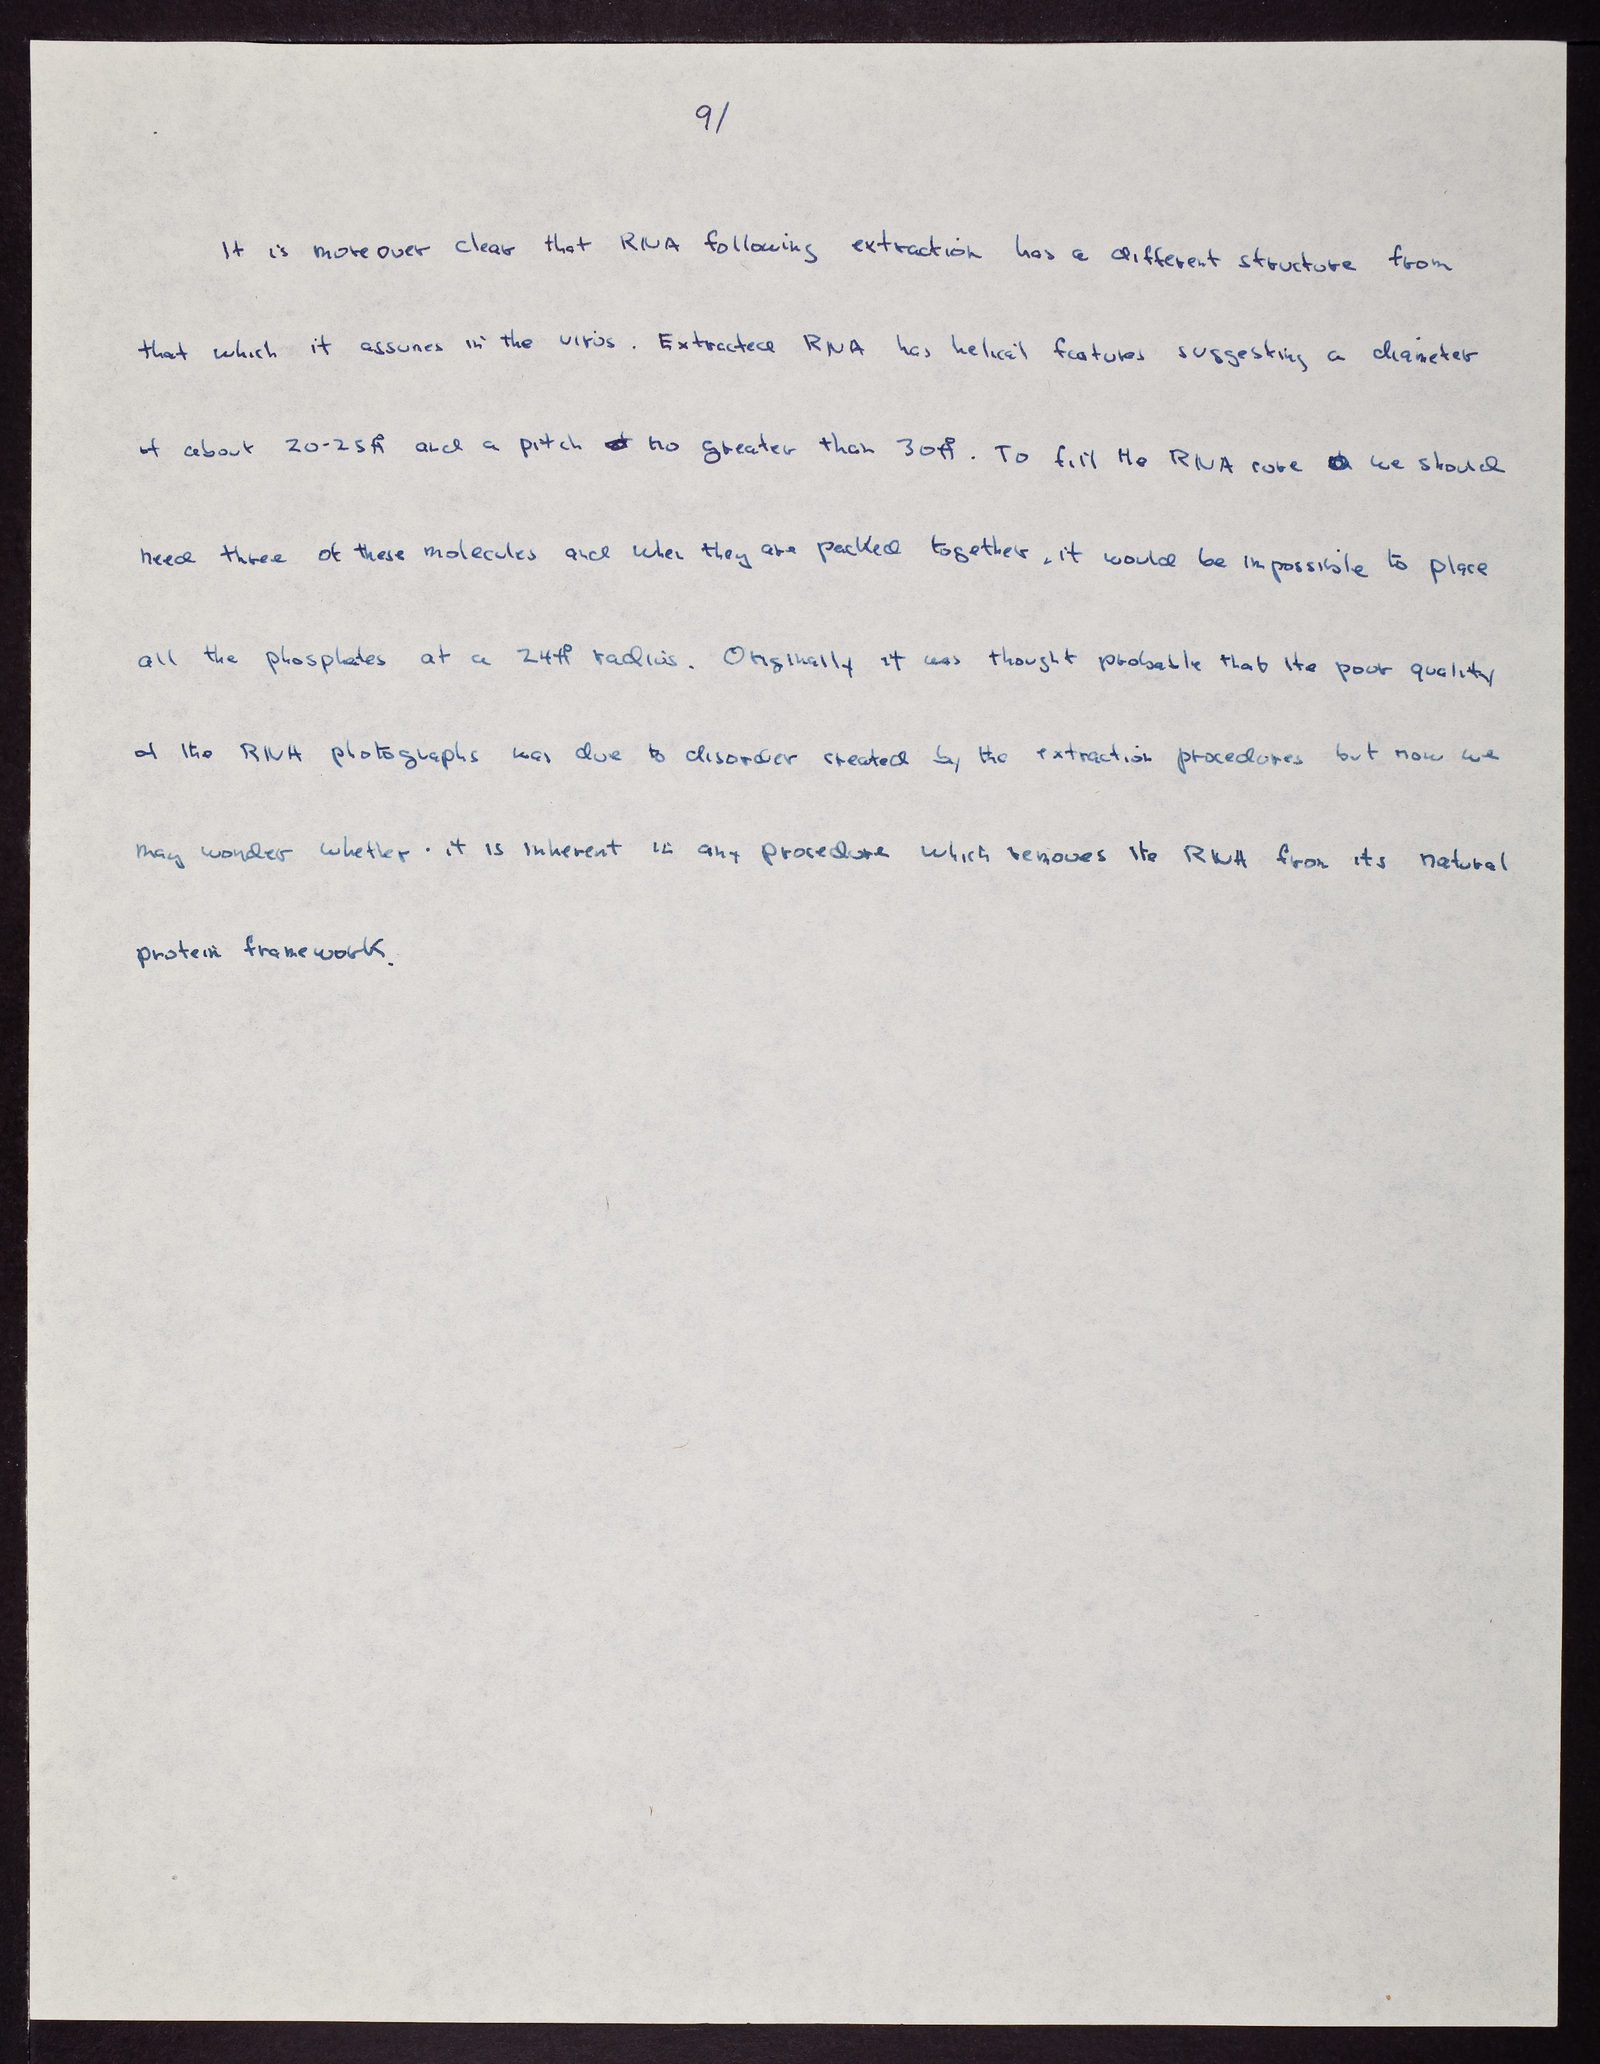 9/
It is moreover clear that RNA following extraction has a different structure from
that which it assumes in the virus. Extracted RNA has helical features suggesting a diameter
of about 20-25Å and a pitch no greater than 30Å. To fill the RNA core we should
need three of these molecules and when they are packed together, it would be impossible to place
all the phosphates at a 24Å radius. Originally it was thought probable that the poor quality
of the RNA photographs was due to disorder created by the extraction procedures but now we
may wonder whether it is inherent in any procedure which removes the RNA from its natural
protein framework.